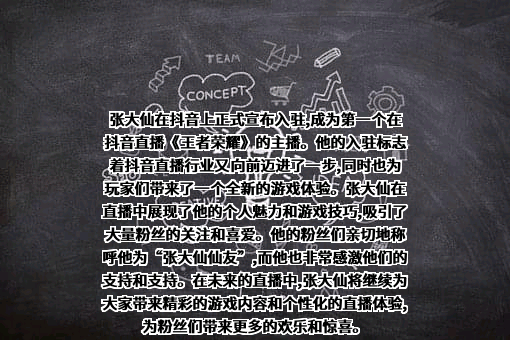 TEAM
CONCEPT
张大仙在抖音上正式宣布入驻,成为第一个在
抖音直播《王者荣耀》的主播。他的入驻标志
着抖音直播行业又向前迈进了一步,同时也为
玩家们带来了一个全新的游戏体验。张大仙在
直播中展现了他的个人魅力和游戏技巧,吸引了
大量粉丝的关注和喜爱。他的粉丝们亲切地称
呼他为“张大仙仙友”,而他也非常感激他们的
支持和支持。在未来的直播中,张大仙将继续为
大家带来精彩的游戏内容和个性化的直播体验,
为粉丝们带来更多的欢乐和惊喜。